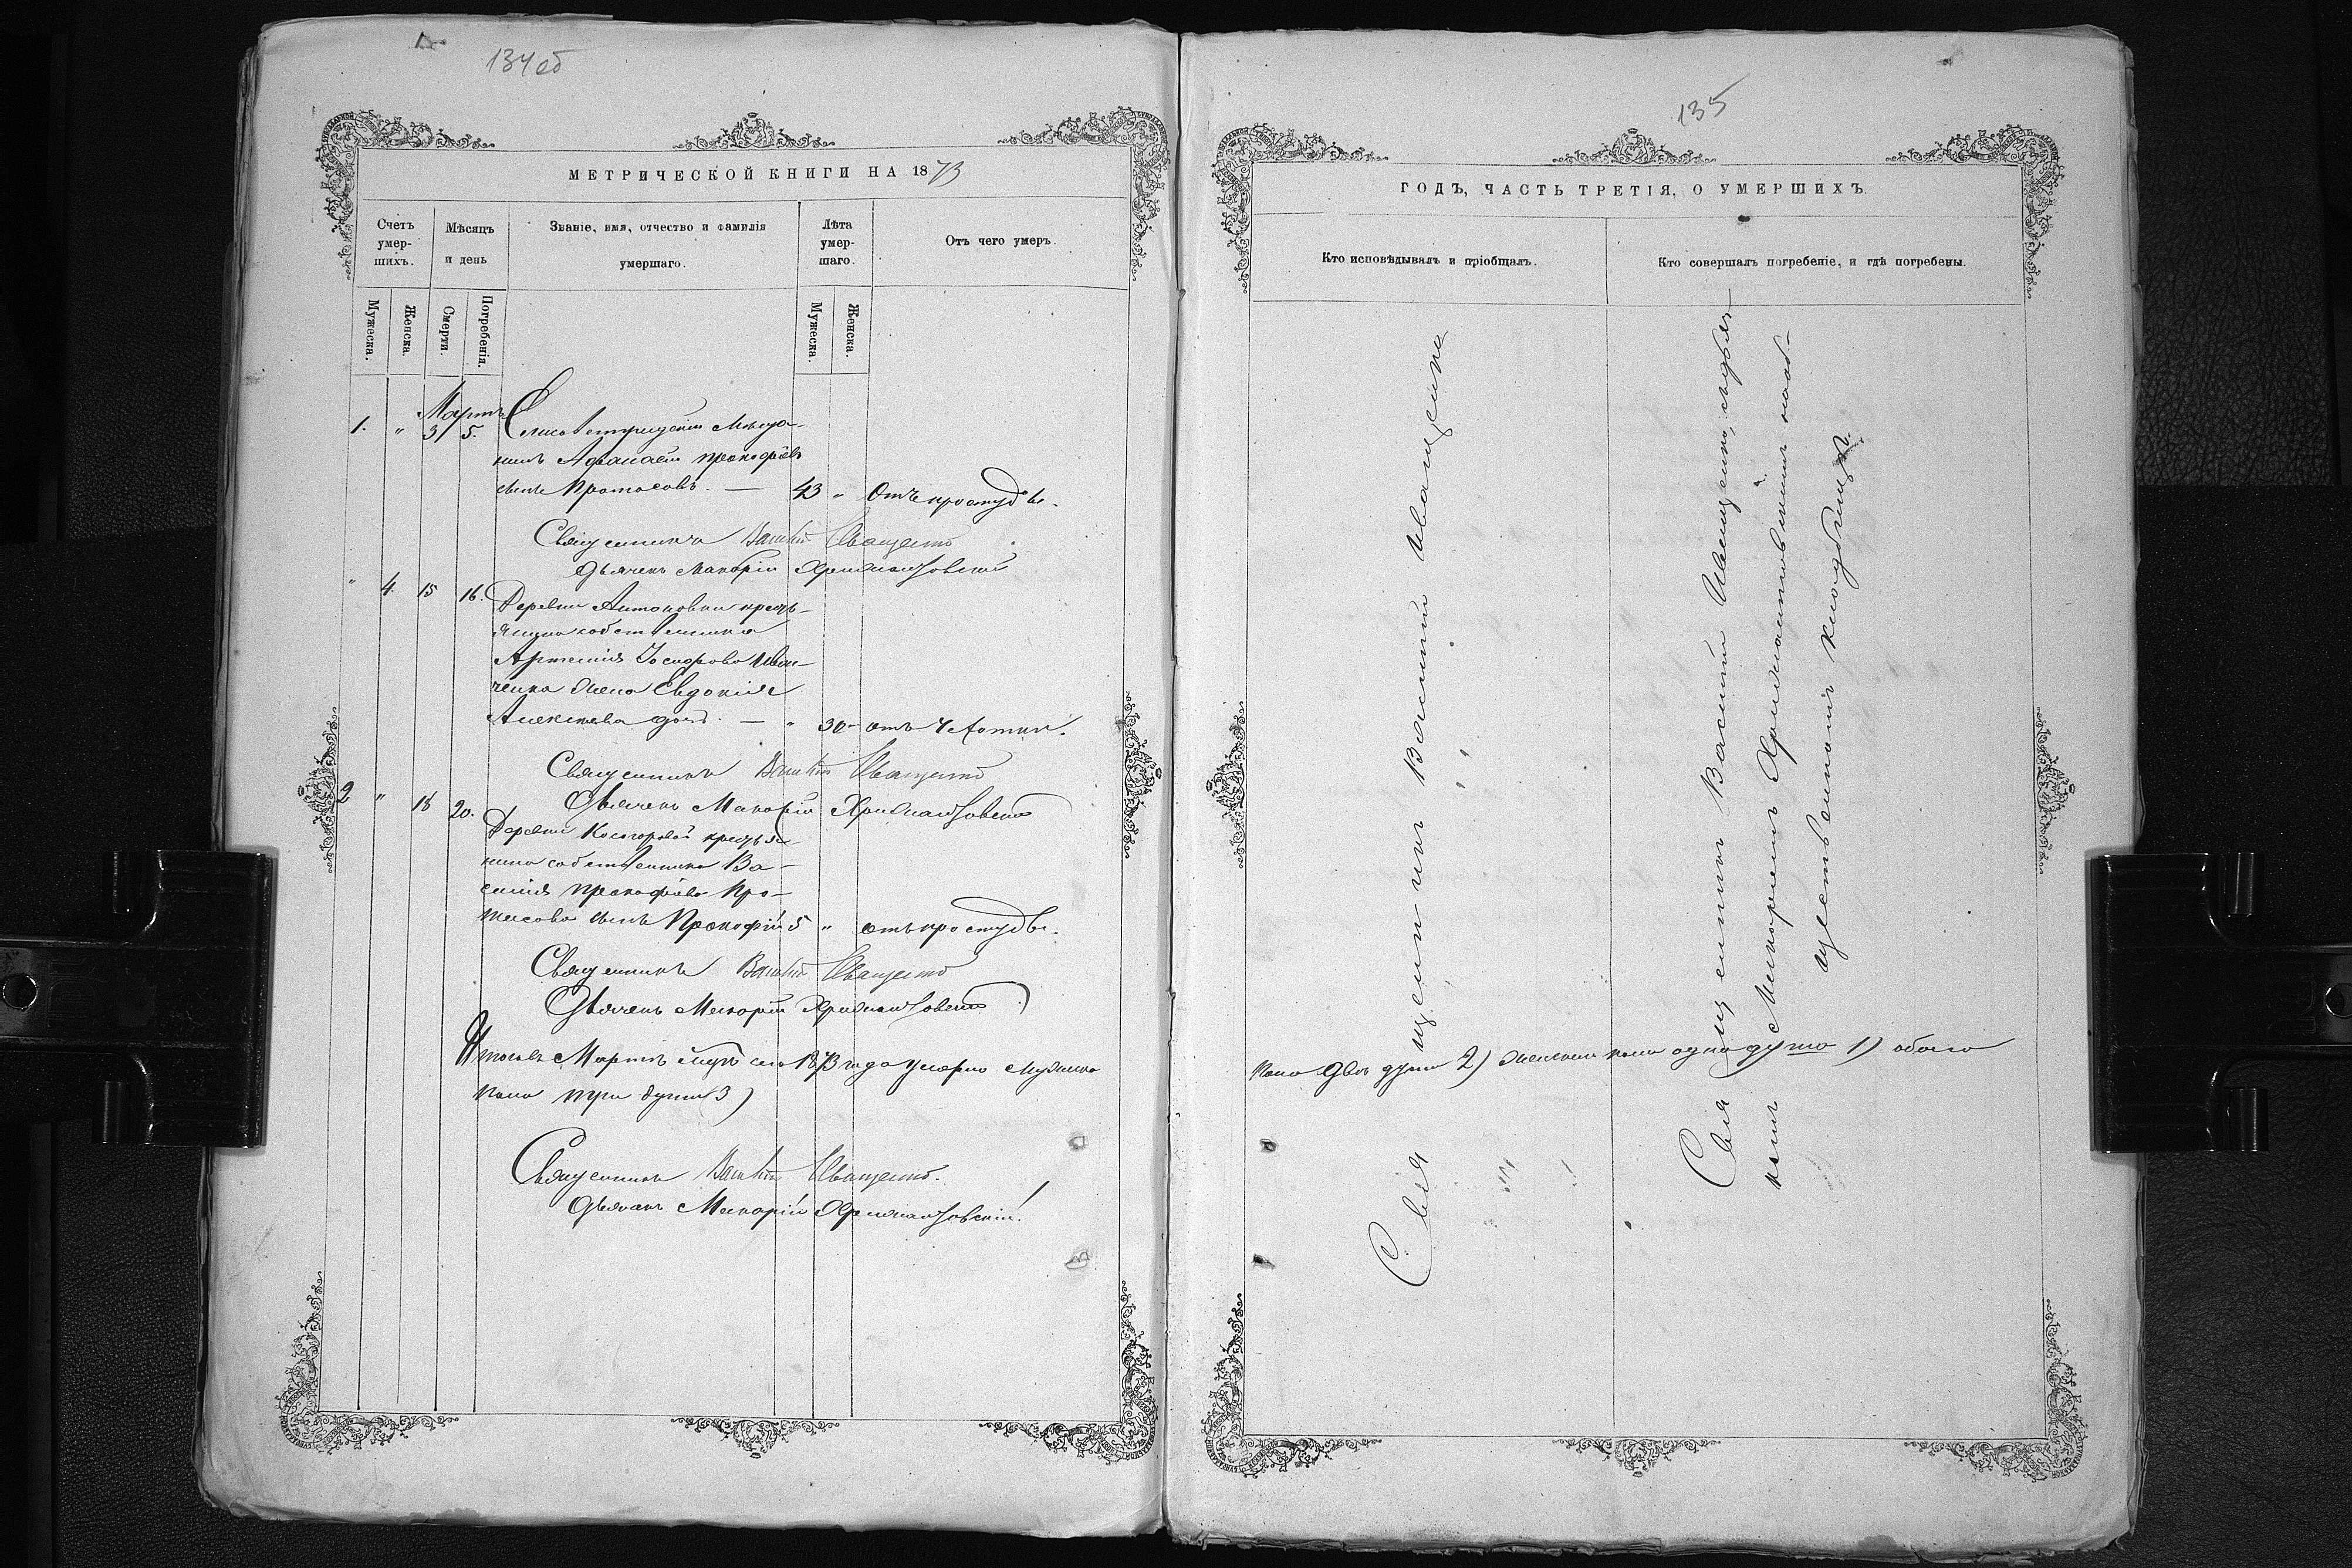 134об
МЕТРИЧЕСКОЙ КНИГИ НА 1873
Счетъ умер-шихъ.
Мѣсяцъ и день
Званіе, имя, отчество и фамилія умершаго.
Лѣта умер-шаго.
Отъ чего умеръ.
Мужеска.
Женска.
Смерти.
Погребенія.
Мужеска.
Женска.
Мартъ
1. " 3 5.
нинъ Афанасій Прокофіевъ
сынъ Протасовъ. — 43 " Отъ простуды.
Священникъ Василій Иващенко
Дьячекъ Макарій Хрижановскій
" 4. 15 16. Деревни Антоновки кресть-
янина собственника
Артемія Іосифова Иван-
ченка жена Евдокія
Алексѣева дочь. — " 30 — отъ чахотки.
Священникъ Василій Иващенко
Дьячекъ Макарій Хрижановскій
2 " 18 20. Деревни Косогоровой крестья-
нина собственника Ва-
силія Прокофіева Про-
тасова сынъ Прокофій 5 " отъ простуды.
Священникъ Василій Иващенко
Дьячекъ Макарій Хрижановскій
Итого въ Мартѣ мцѣ сего 1873 года умерло мужеска
пола три души (3)
Священникъ Василій Иващенко.
Дьячекъ Макарій Хрижановскій.
135
ГОДЪ, ЧАСТЬ ТРЕТІЯ, О УМЕРШИХЪ.
Кто исповѣдывалъ и пріобщалъ.
Кто совершалъ погребеніе, и гдѣ погребены.
Священникъ Василій Иващенко
Священникъ Василій Иващенко, съ дьяч-
комъ Макаріемъ Хрижановскимъ на об-
щественномъ кладбищѣ.
пола двѣ души 2) женска пола одна душа 1) обоего